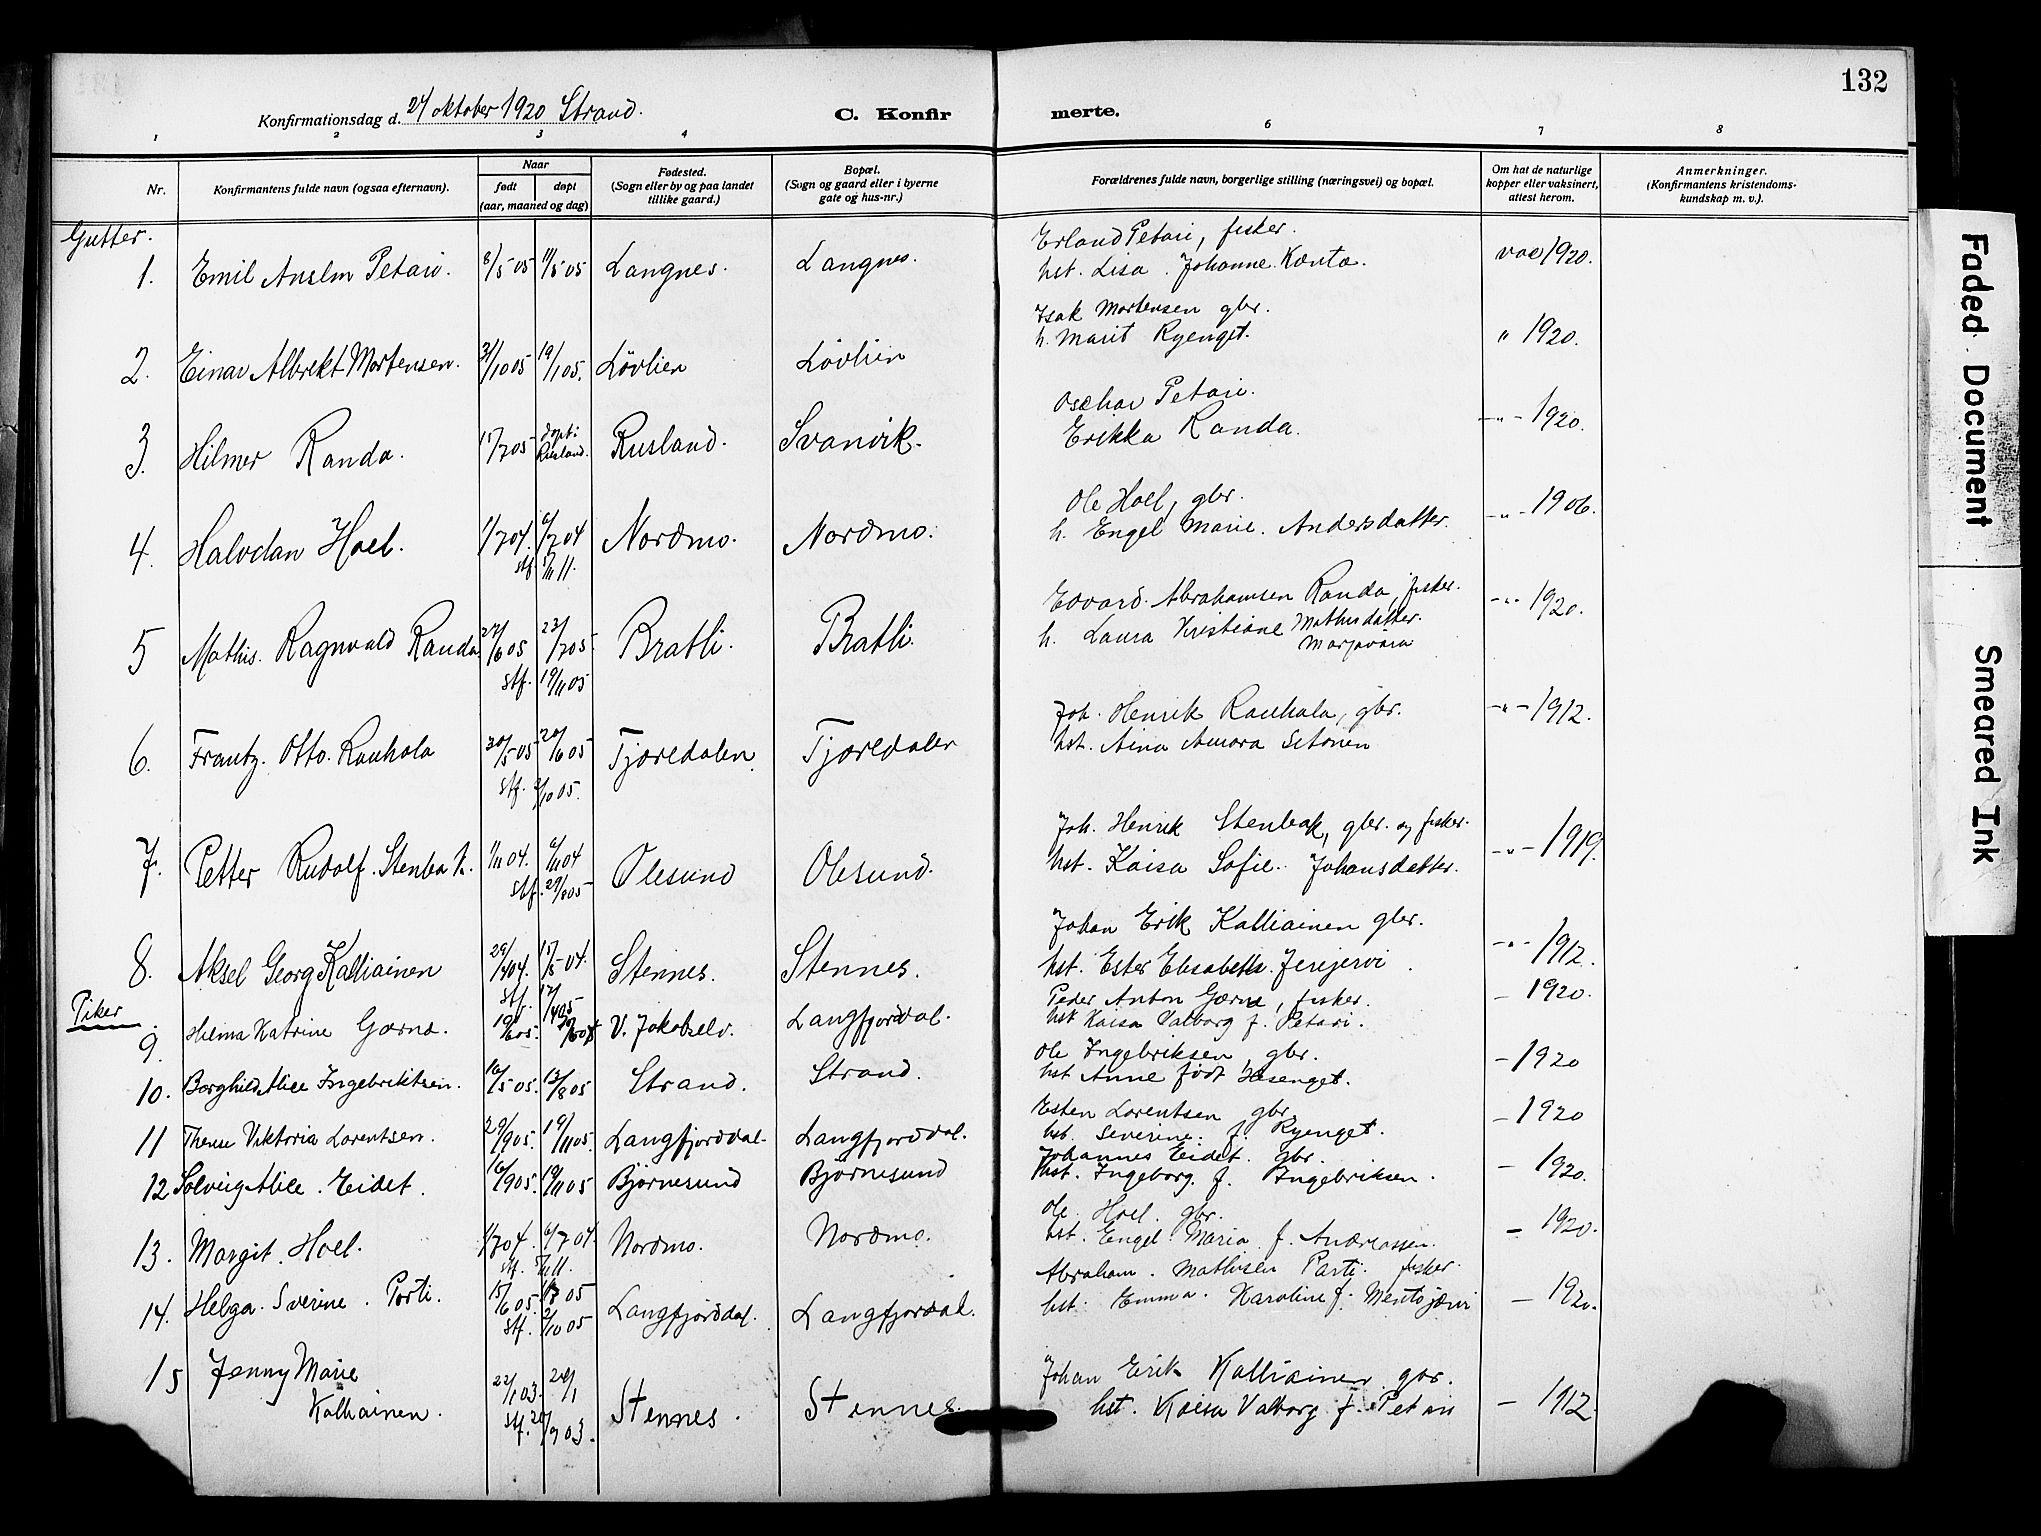 132
Konfirmationsdag d. 24 oktober 1920 Strand.
C. Konfirmerte.
1 2 3 4 6 7 8
Nr.
Konfirmantens fulde navn (ogsaa efternavn).
Naar
født
døpt
(aar, maaned og dag)
Fødested.
(Sogn eller by og paa landet
tillike gaard.)
Bopæl.
(Sogn og gaard eller i byerne
gate og hus-nr.)
Forældrenes fulde navn, borgerlige stilling (næringsvei) og bopæl.
Om hat de naturlige
kopper eller vaksinert,
attest herom.
Anmerkninger.
(Konfirmantens kristendoms-
kundskap m. v.).
Gutter.
1. Emil Anslm Petari. 8/5 05 11/5 05 Langnes. Langnes. Erland Petari, fisker. vac 1920.
hst. Lisa Johanne Kænta.
2. Einar Albrekt Mortensen. 31/10 05 19/1 05. Lövlien Lövlien Isak Mortensen gbr. " 1920.
h. Marit Ryenget.
3. Hilmer Randa. 15/7 05 döpt i Rusland. Rusland. Svanvik. Oschar Petari. -"- 1920.
Erikka Randa.
4. Halvdan Hoel. 1/7 04. 6/7 04 Nordmo. Nordmo. Ole Hoel, gbr. -"- 1906.
stf. 5/111. h. Engel Marie. Andersdatter.
5 Mathis. Ragnvald Randa 27/6 05 23/7 05 Bratli. Bratli. Edvard Abrahamsen Randa, fisker. -"- 1920.
stf. 19/11 05 h. Laura Kristiane Mathisdatter.
Marjavara
6. Frantz. Otto. Rauhala 30/5 05 20/6 05 Tjæredalen Tjæredalen Joh. Henrik Rauhala, gbr. -"- 1912.
stf. 2/10 05. hst. Aina Amora Sitonen
7. Petter Rudolf. Stenbak. 1/11 04. 6/11 04 Olesund Olesund. Joh. Henrik Stenbak, gbr. og fisker. -"- 1919.
stf. 29/8 05 hst. Kaisa Sofie. Johansdatter.
8. Aksel Georg Kalliainen 29/4 04. 15/5 04. Stennes. Stennes. Johan Erik Kalliainen gbr. -"- 1912.
stf. hst. Ester Elisabeth. Jerijervi.
Piker.
9. Helma Katrine Gærna. V. Jakobselv. Langfjorddal. Peder Anton Gærna, fisker. - 1920.
hst Kaisa Valborg f. Petari.
10. Borghild Alice Ingebriktsen. 16/5 05. 13/8 05 Strand. Strand. Ole Ingebriksen, gbr. - 1920
hst Anne født Hasenget.
11 Therese Viktoria Lorentsen. 29/9 05. 19/11 05. Langfjorddal. Langfjorddal. Esten Lorentsen gbr. - 1920
hst. Severine. f. Ryenget.
12 Solveig Alice. Eidet. 16/9 05. 19/11 05 Björnesund Björnesund Johannes Eidet. gbr. - 1920.
hst. Ingeborg. f. Ingebriksen.
13. Margit. Hoel. 1/7 04. 6/7 04. Nordmo. Nordmo. Ole Hoel. gbr. - 1920.
stf. hst. Engel Maria f. Andreassen.
14. Helga. Sverine. Porti. 15/6 05. Langfjorddal. Langfjordal. Abraham. Mathisen Parti. fisker. - 1920.
stf. 2/10 05 hst. Emma. Karoline f. Mentojærvi
15 Jenny Marie 22/1 03. Stennes. Stennes. Johan Erik Kalliainen gbr. - 1912.
Kalliainen. stf. hst. Kaisa Valborg f. Petari
Faded Document
Smeared Ink